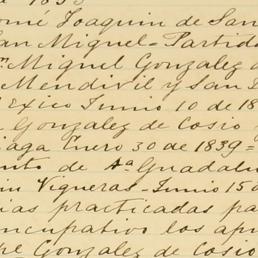 omé Joaquin de San
an Miguel = Partida
n. Miguel Gonzalez d
Mendivil y San
Exico Junio 10 de 18
Gonzalez de Cosio y
iaga Enero 30 de 1839 =
nto de Ma Guadalu
in Vigueras = Junio 15 d
ias practicadas pa
ncupativo los apo
pe Gonzalez de Cosio